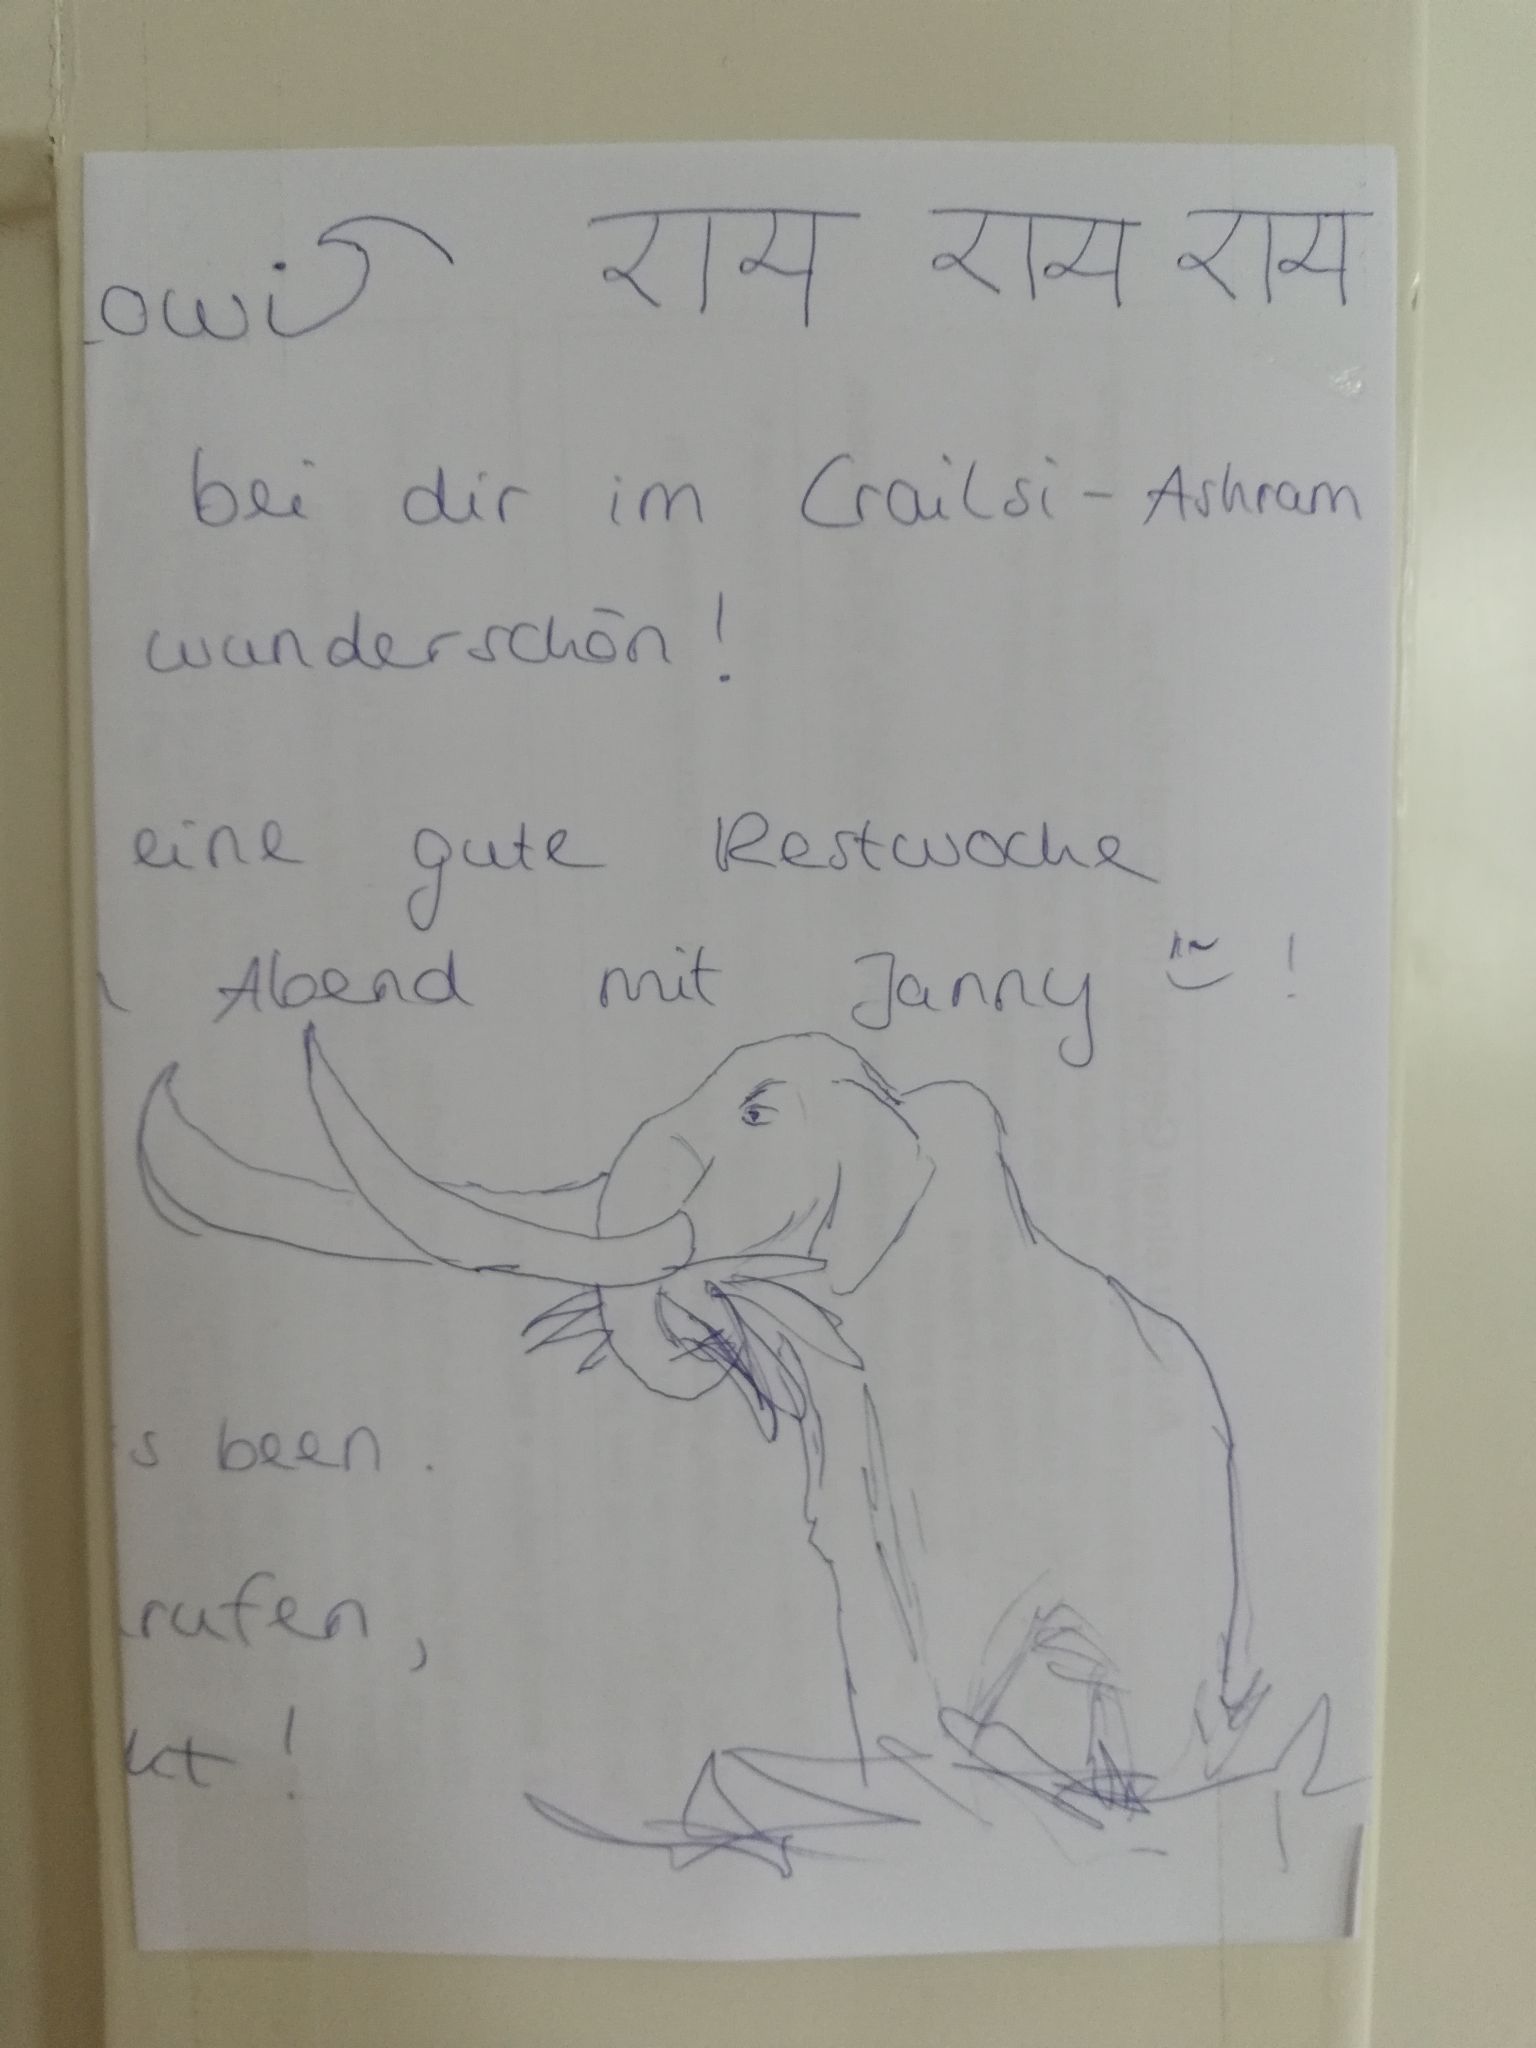 owi राम राम राम
bei dir im Crailsi-Ashram
wunderschön!
eine gute Restwoche
Abend mit Janny !
s been.
rufen,
kt!